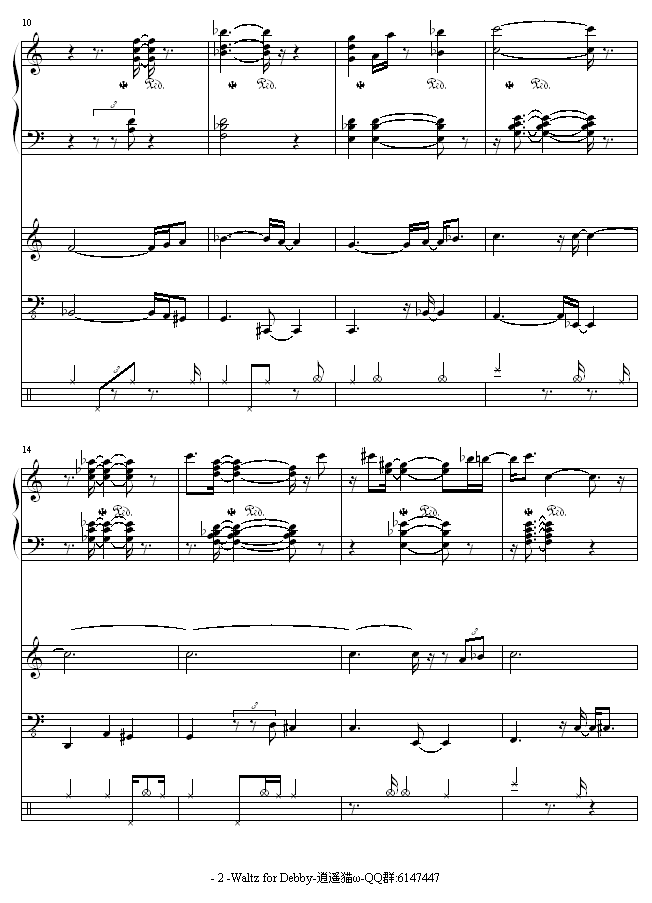 10
3
Ped.
Ped.
Ped.
Ped.
3
3
14
Ped.
Ped.
Ped.
Ped.
3
3
- 2 -Waltz for Debby-逍遥猫ω-QQ群:6147447